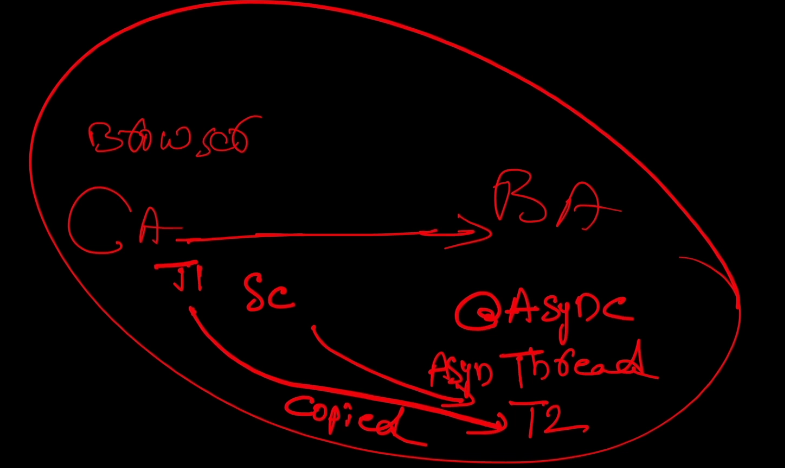 Browser
CA
BA
T1
SC
@Async
Asyn Thread
Copied
T2